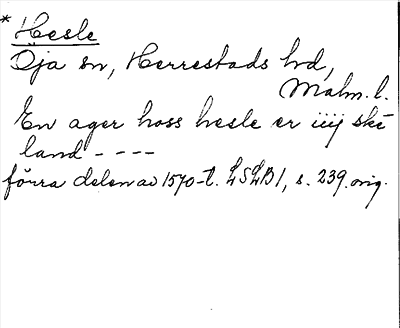 * Hesle
Öja sn, Herrestads hd,
Malm. l.
En ager hoss hesle er iiij ske
land - - - -
förra delen av 1570-t. LSLB 1, s. 239. orig.